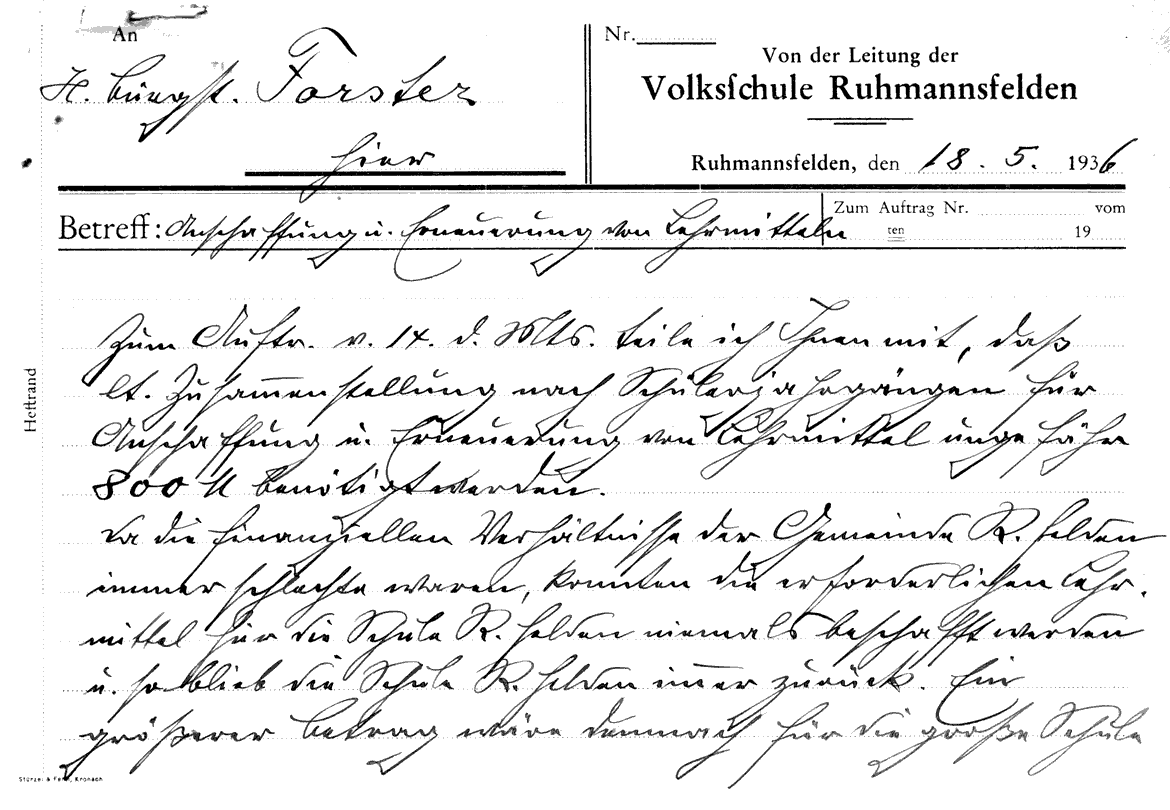 An
H. Bürgst. Forster
hier
Nr.
Von der Leitung der
Volksschule Ruhmannsfelden
Ruhmannsfelden, den 18. 5. 1936
Betreff: Anschaffung u. Erneuerung von Lehrmitteln
Zum Auftrag Nr. vom
ten 19
Heftrand
Zum Auftr. v. 14. d. Mts. teile ich Ihnen mit, daß
lt. Zusammenstellung nach Schülerjahrgängen für
Anschaffung u. Erneuerung von Lehrmittel ungefähr
800 M benötigt werden.
Da die finanziellen Verhältnisse der Gemeinde R. felden
immer schlechte waren, konnten die erforderlichen Lehr-
mittel für die Schule R. felden niemals beschafft werden
u. so blieb die Schule R. felden immer zurück. Ein
größerer Betrag wäre demnach für die große Schule
Stürzel & Fehn, Kronach